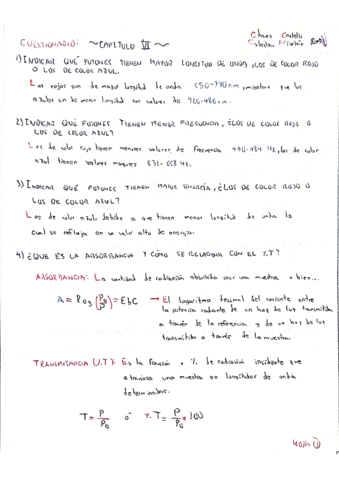 CUESTIONARIO: ~CAPITULO VI~
1) INDICAR QUÉ FOTONES TIENEN MAYOR LONGITUD DE ONDA ¿LOS DE COLOR ROJO
O LOS DE COLOR AZUL.
Los rojos son de mayor longitud de onda 650-770nm, mientras que los
azules son la menor longitud con valores de 420-480nm.
2) INDICAR QUÉ FOTONES TIENEN MENOR FRECUENCIA, ¿LOS DE COLOR ROJO O
LOS DE COLOR AZUL?
Los de color rojo tienen menores valores de frecuencia 440-484 Hz, los de color
azul tienen valores mayores 631-668 Hz.
3) INDICAR QUÉ FOTONES TIENEN MAYOR ENERGÍA, ¿LOS DE COLOR ROJO O
LOS DE COLOR AZUL?
Los de color azul debido a que tienen menor longitud de onda lo
cual se refleja en un valor alto de energía.
4) ¿QUE ES LA ABSORBANCIA Y CÓMO SE RELACIONA CON EL %T?
ABSORBANCIA: La cantidad de radiación absorbida por una muestra o bien...
A = log (P0/P) = Ebc → El logaritmo decimal del cociente entre
la potencia radiante de un haz de luz transmitida
a través de la referencia y de un haz de luz
transmitido a través de la muestra.
TRANSMITANCIA (%T): Es la fracción o % de radiación incidente que
atraviesa una muestra en longitudes de onda
determinadas.
T = P/P0 ó %T = P/P0 * 100